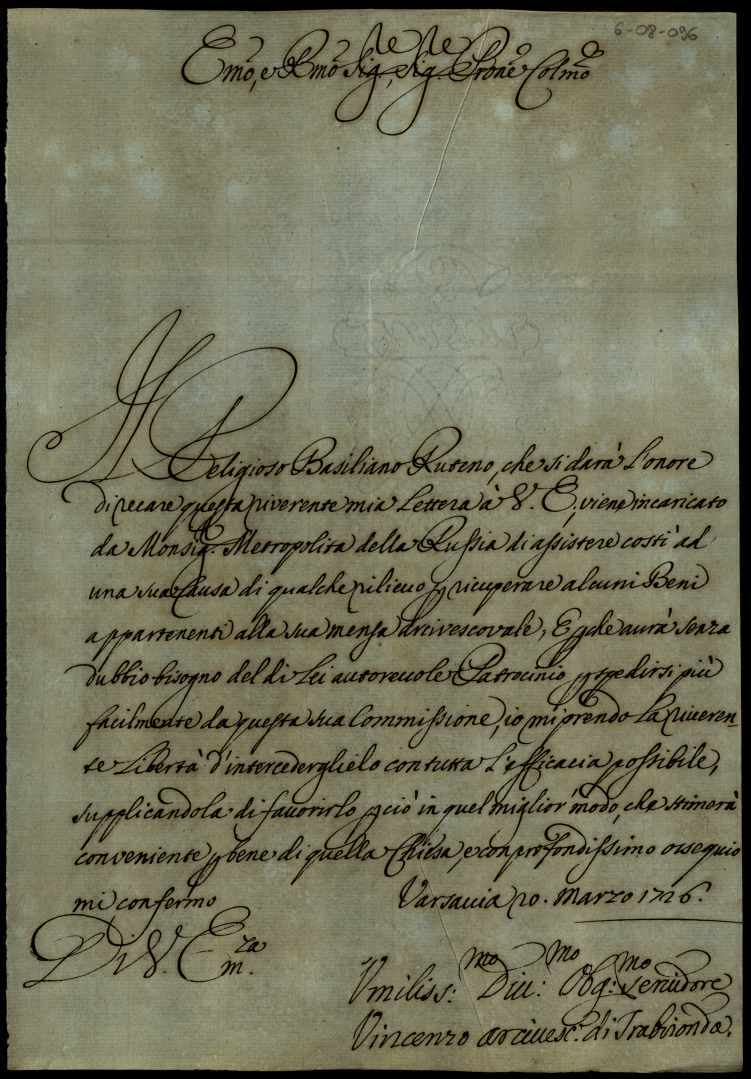 6-08-096
Emo, e Rmo Sig.re, Sig.re Prone Colmo
Il Religioso Basiliano Ruteno, che si darà l'onore
di recare questa riverente mia Lettera à V. E., viene incaricato
da Monsig.r Metropolita della Russia di assistere costì ad
una sua Causa di qualche rilieuo p ricuperare alcuni Beni
appartenenti alla sua mensa Arcivescovale, E pche aurà senza
dubbio bisogno del di Lei autoreuole Patrocinio p spedirsi più
facilmente da questa sua Commissione, io mi prendo la riueren-
te Libertà d'intercederglielo con tutta l'efficacia possibile,
supplicandola di favorirlo p ciò in quel miglior modo, che stimerà
conveniente p bene di quella Chiesa, e con profondissimo ossequio
mi confermo Varsauia 20. Marzo 1726.
Di V. Em.za
Vmiliss:mo Diu:mo Obg:mo seruidore
Vincenzo Arciuesc.o di Trabisonda.